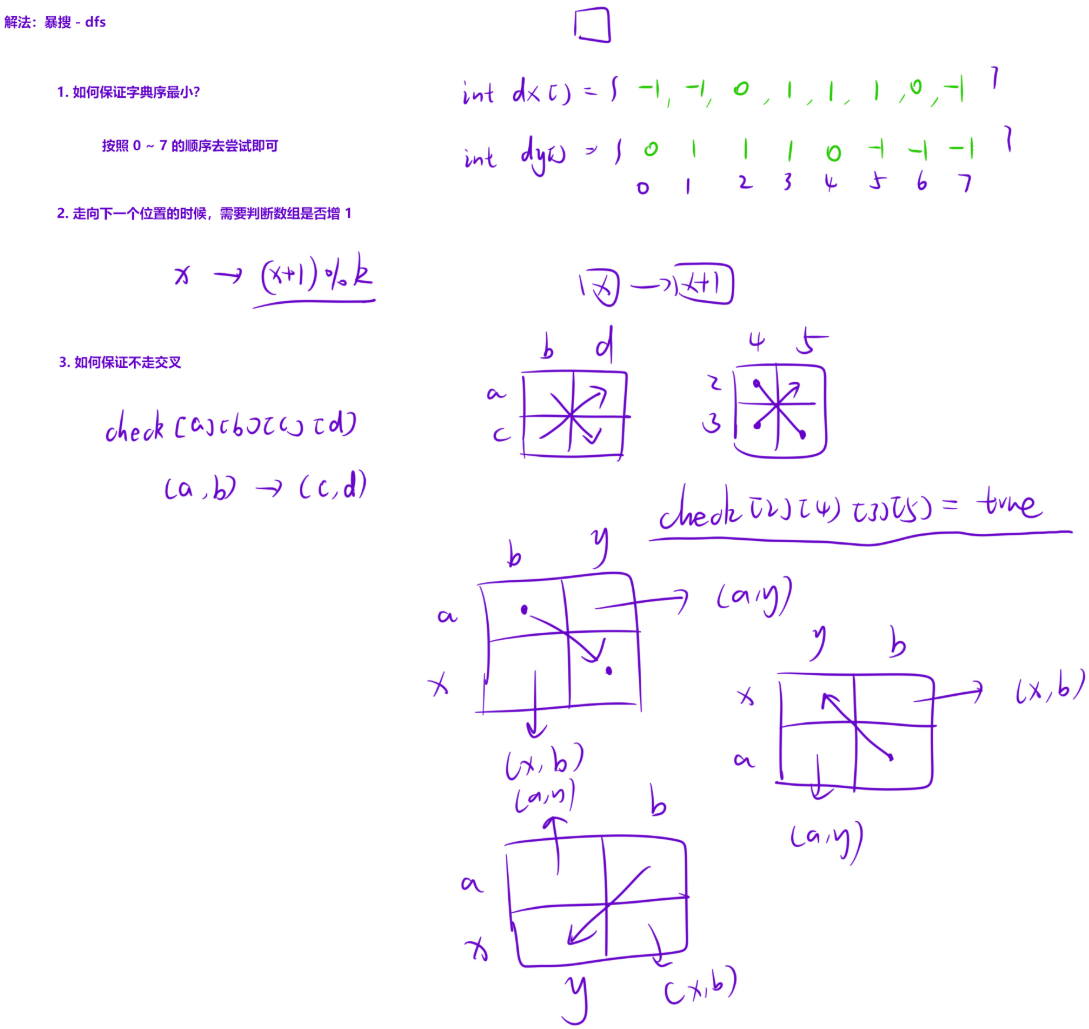 解法：暴搜 - dfs
1. 如何保证字典序最小？
按照 0 ~ 7 的顺序去尝试即可
int dx[] = { -1, -1, 0, 1, 1, 1, 0, -1 }
int dy[] = { 0 1 1 1 0 -1 -1 -1 }
0 1 2 3 4 5 6 7
2. 走向下一个位置的时候，需要判断数组是否增 1
x → (x+1) % k
x → x+1
3. 如何保证不走交叉
check [a][b][c][d]
(a,b) → (c,d)
b d
a
c
4 5
2
3
check[2][4][3][5] = true
b y
a
x
(a,y)
(x,b)
y b
x
a
(x,b)
(a,y)
(a,y)
b
a
x
y
(x,b)